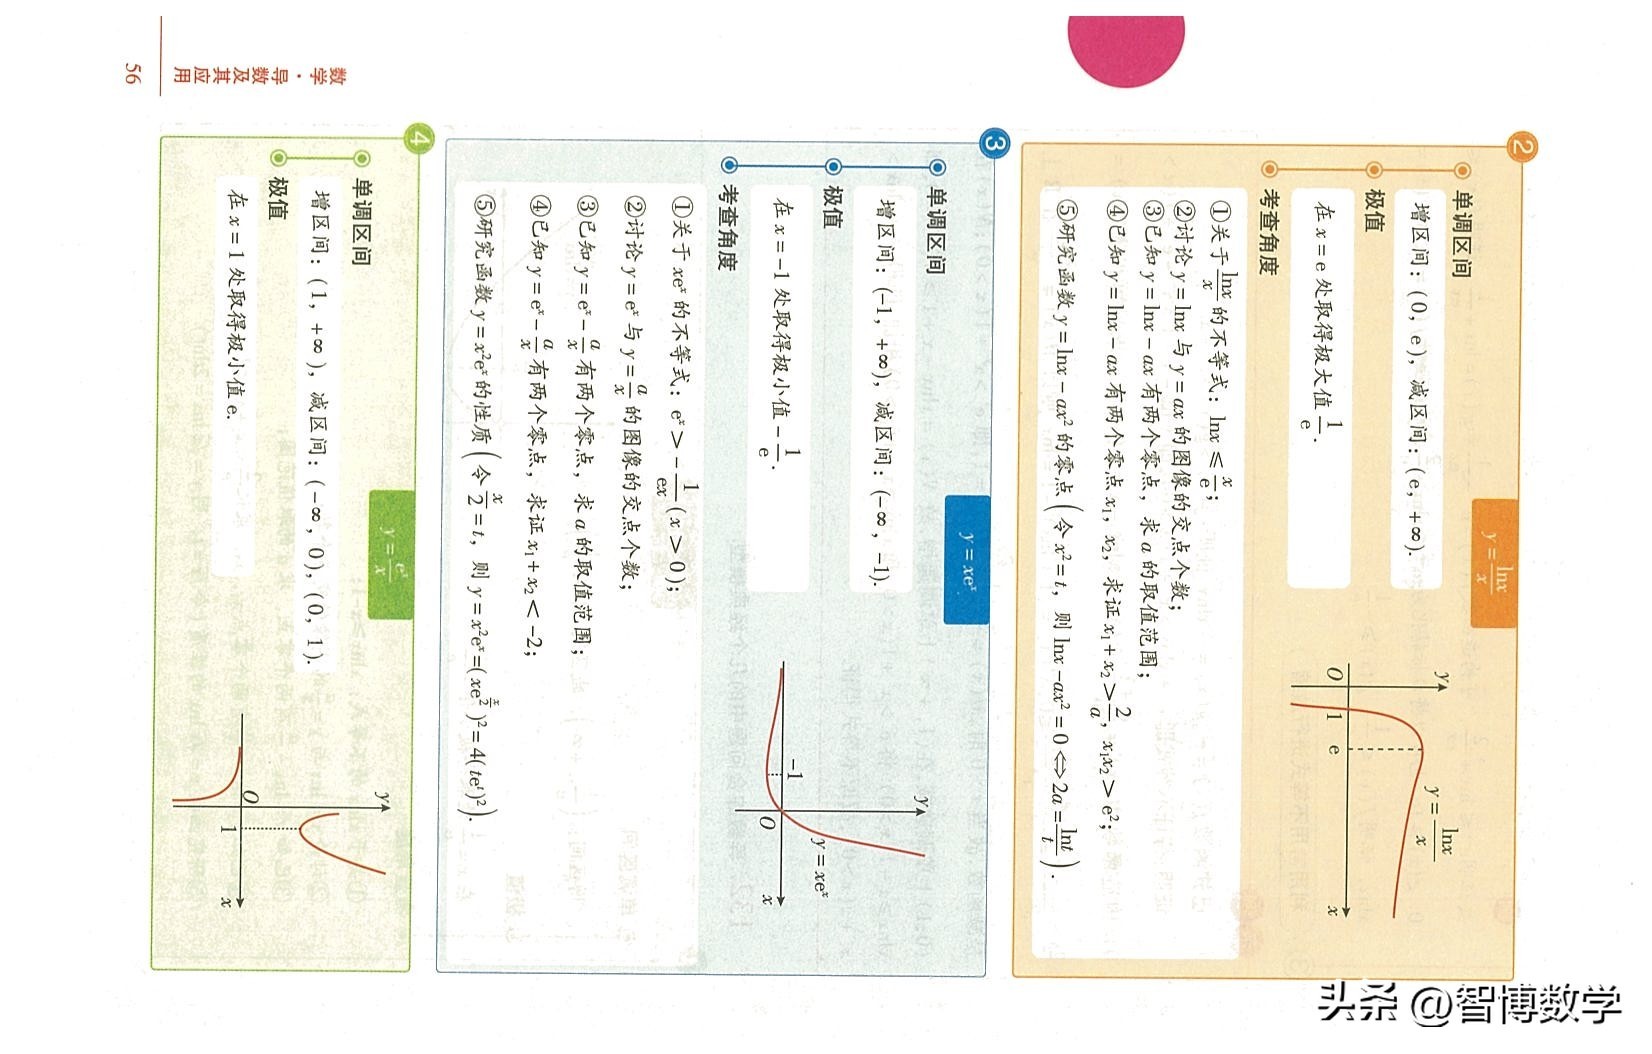 ②
y=lnx/x
单调区间
增区间:(0,e),减区间:(e,+∞).
极值
在x=e处取得极大值1/e.
考查角度
①关于lnx/x的不等式:lnx≤x/e;
②讨论y=lnx与y=ax的图像的交点个数;
③已知y=lnx-ax有两个零点,求a的取值范围;
④已知y=lnx-ax有两个零点x₁,x₂,求证x₁+x₂>2/a,x₁x₂>e²;
⑤研究函数y=lnx-ax²的零点(令x²=t,则lnx-ax²=0⇔2a=lnt/t).
y
y=lnx/x
O
1
e
x
③
y=xeˣ
单调区间
增区间:(-1,+∞),减区间:(-∞,-1).
极值
在x=-1处取得极小值-1/e.
考查角度
①关于xeˣ的不等式:eˣ>-1/ex(x>0);
②讨论y=eˣ与y=a/x的图像的交点个数;
③已知y=eˣ-a/x有两个零点,求a的取值范围;
④已知y=eˣ-a/x有两个零点,求证x₁+x₂<-2;
⑤研究函数y=x²eˣ的性质(令x/2=t,则y=x²eˣ=(xe^(x/2))²=4(teᵗ)²).
y
-1
O
y=xeˣ
x
④
y=eˣ/x
单调区间
增区间:(1,+∞),减区间:(-∞,0),(0,1).
极值
在x=1处取得极小值e.
y
O
1
x
数学·导数及其应用
56
头条@智博数学